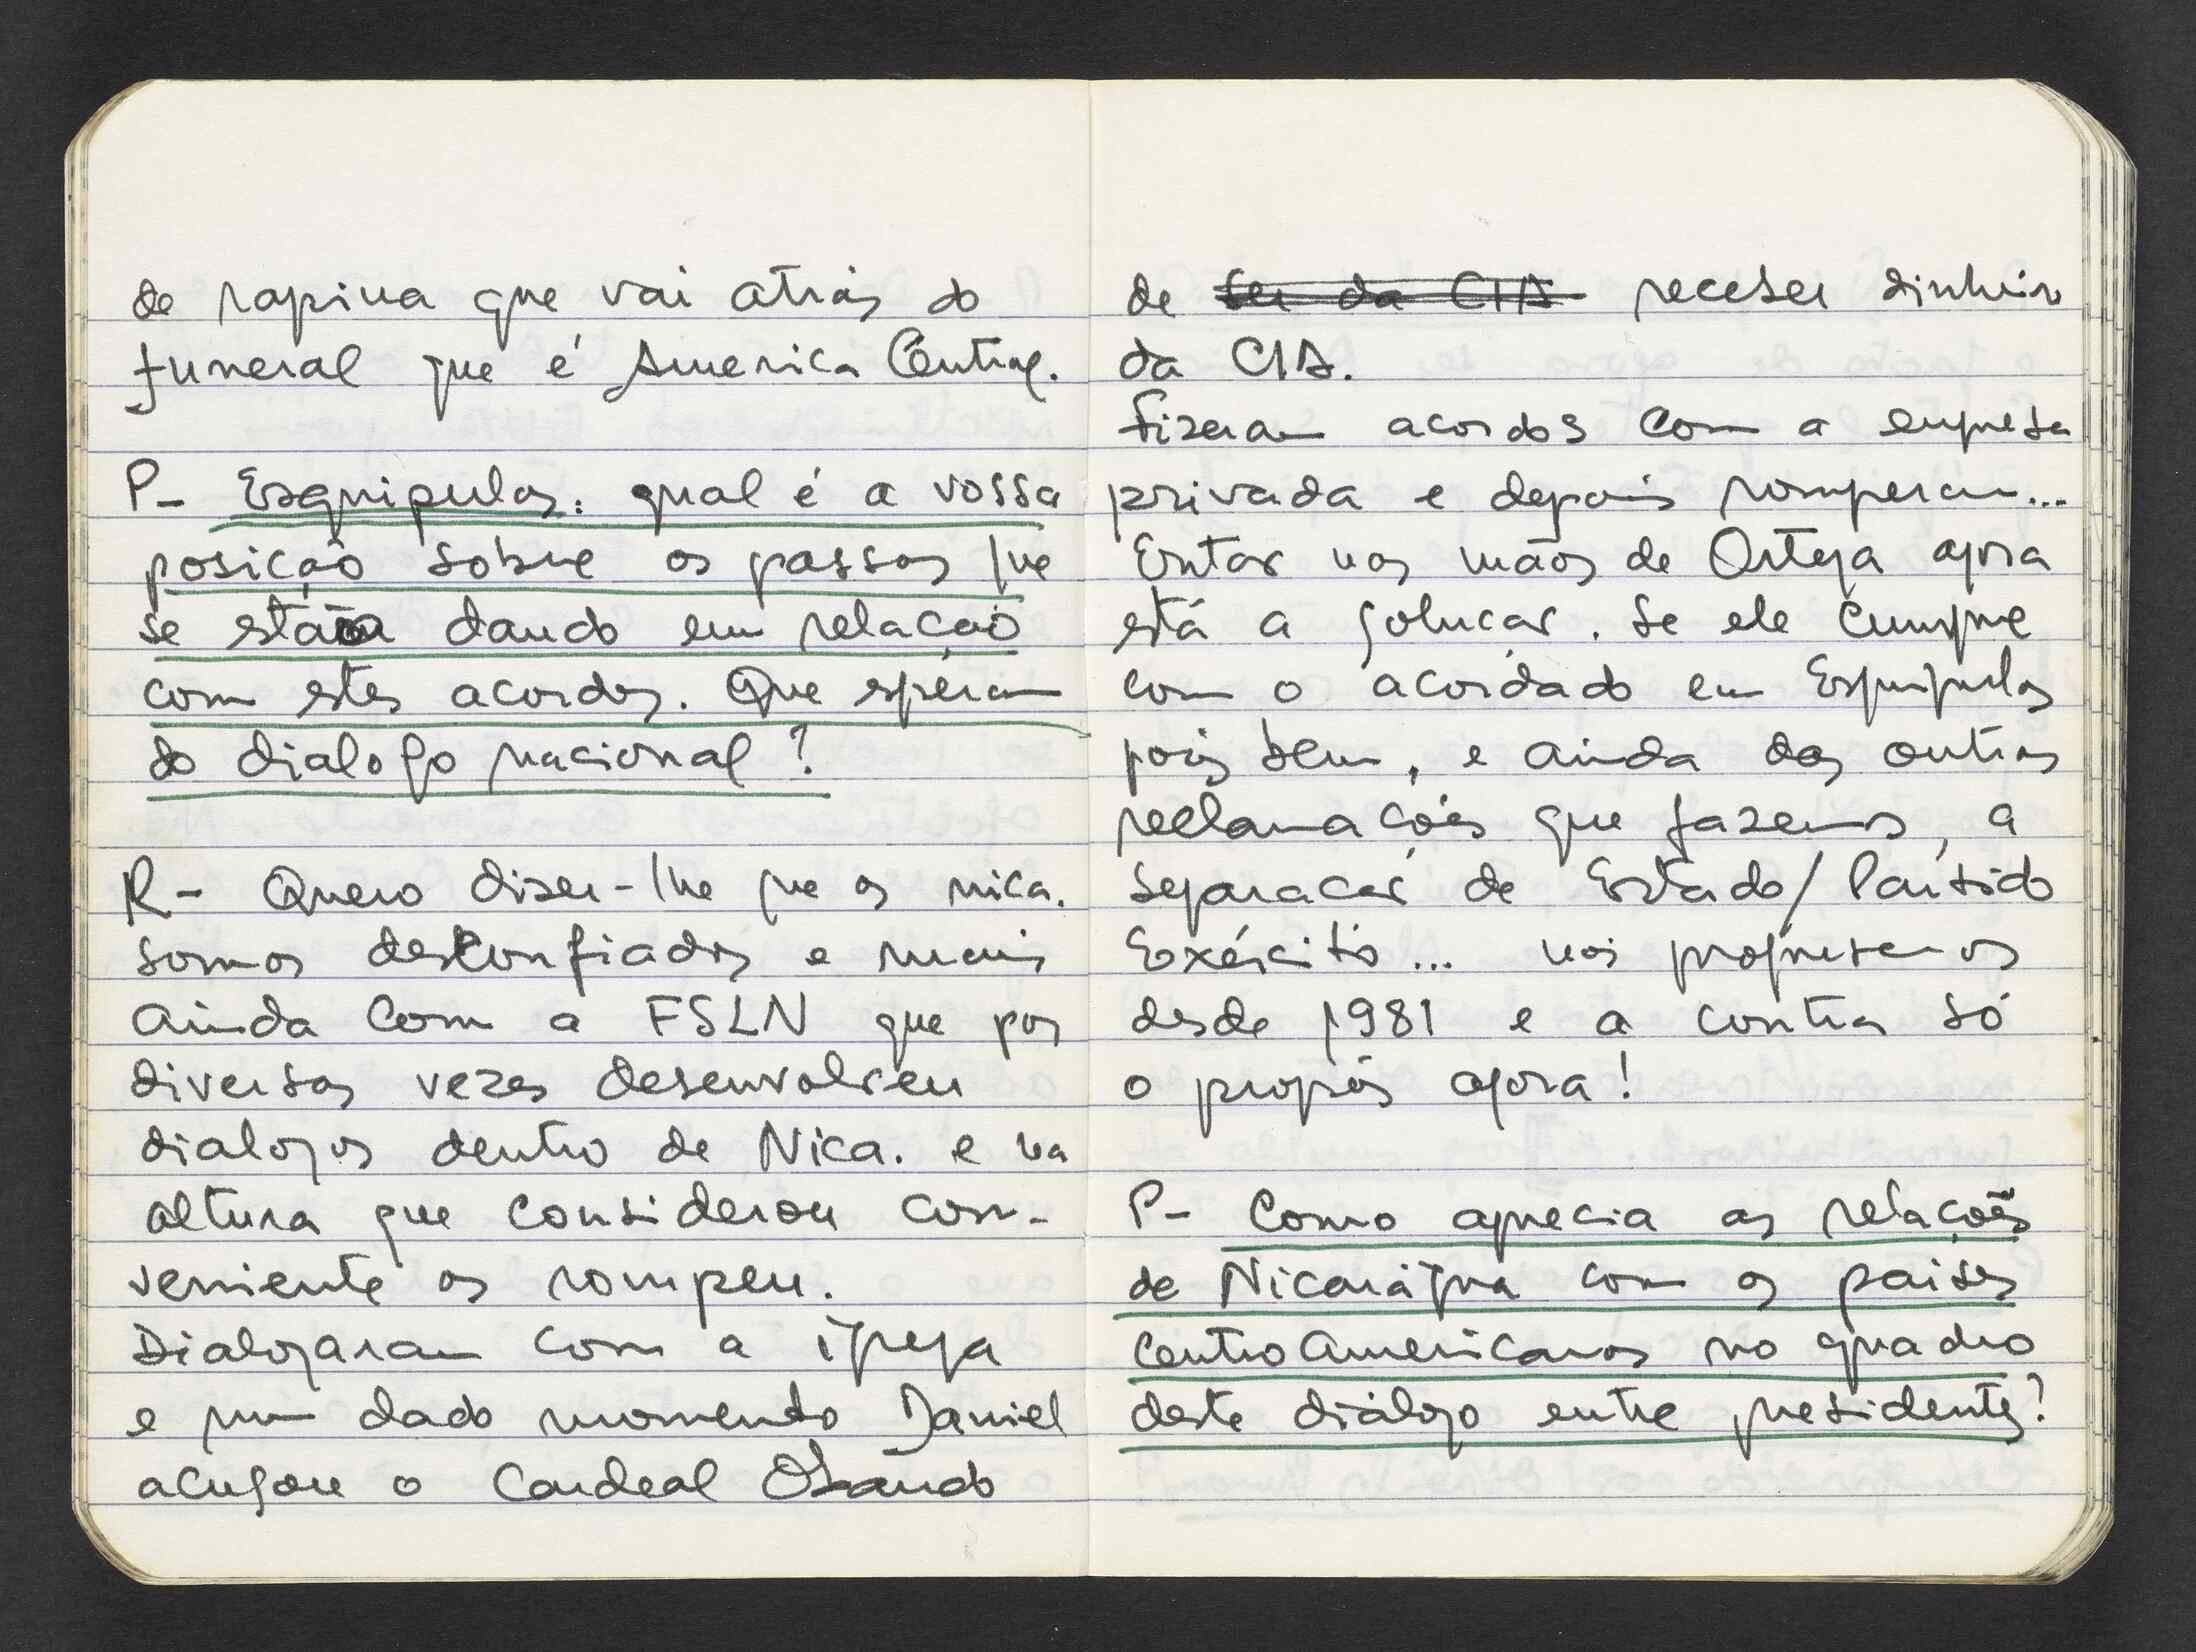 de rapina que vai atrás do
funeral que é America Central.
P- Esquipulas: qual é a vossa
posição sobre os passos que
se estão dando em relação
com estes acordos. Que esperam
do dialogo nacional?
R- Quero dizer-lhe que os nica.
somos desconfiados e mais
ainda com a FSLN que por
diversas vezes desenvolveu
dialogos dentro de Nica. e na
altura que considerou con-
veniente os rompeu.
Dialogaram com a igreja
e num dado momento Daniel
acusou o Cardeal Obando
de ser da CIA receber dinheiro
da CIA.
Fizeram acordos com a empresa
privada e depois romperam...
Entar nas mãos de Ortega agora
está a solucar. Se ele cumpre
com o acordado em Esquipulas
pois bem, e ainda das outras
reclamações que fazemos, a
separacar de Estado/Partido
Exército... nós propusemos
desde 1981 e a contra só
o propôs agora!
P- Como aprecia as relações
de Nicarágua com os paises
centroamericanos no quadro
deste diálogo entre presidentes?